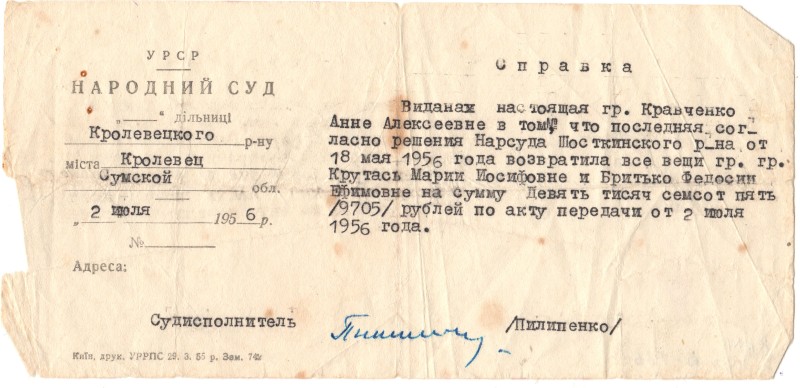 УРСР
НАРОДНИЙ СУД
„____“ дільниці
Кролевецкого р-ну
міста Кролевец
Сумской обл.
„ 2 июля 1956 р.
№
Адреса:
Справка
Виданах настоящая гр. Кравченко
Анне Алексеевне в том, что последняя сог-
ласно решения Нарсуда Шосткинского р-на от
18 мая 1956 года возвратила все вещи гр. гр.
Крутась Марии Иосифовне и Бритько Федосии
Ефимовне на сумму Девять тисяч семсот пять
/9705/ рублей по акту передачи от 2 июля
1956 года.
Судисполнитель /Пилипенко/
Київ, друк. УРРПС 29. 3. 55 р. Зам. 742